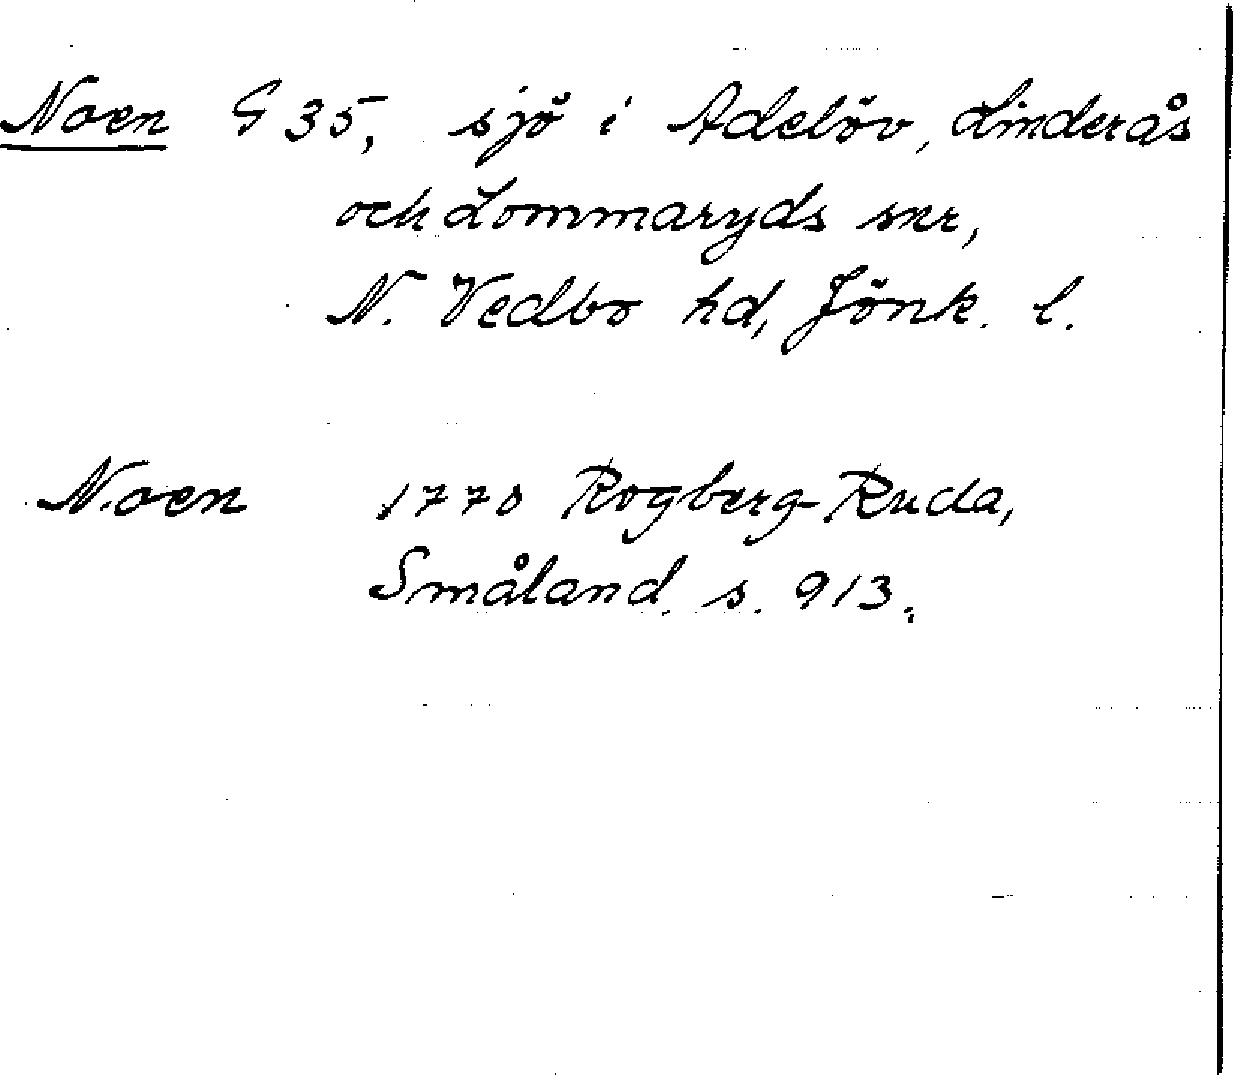 Noen G 35, sjö i Adelöv, Linderås
och Lommaryds snr,
N. Vedbo hd, Jönk. l.
Noen 1770 Rogberg-Ruda,
Småland s. 913.